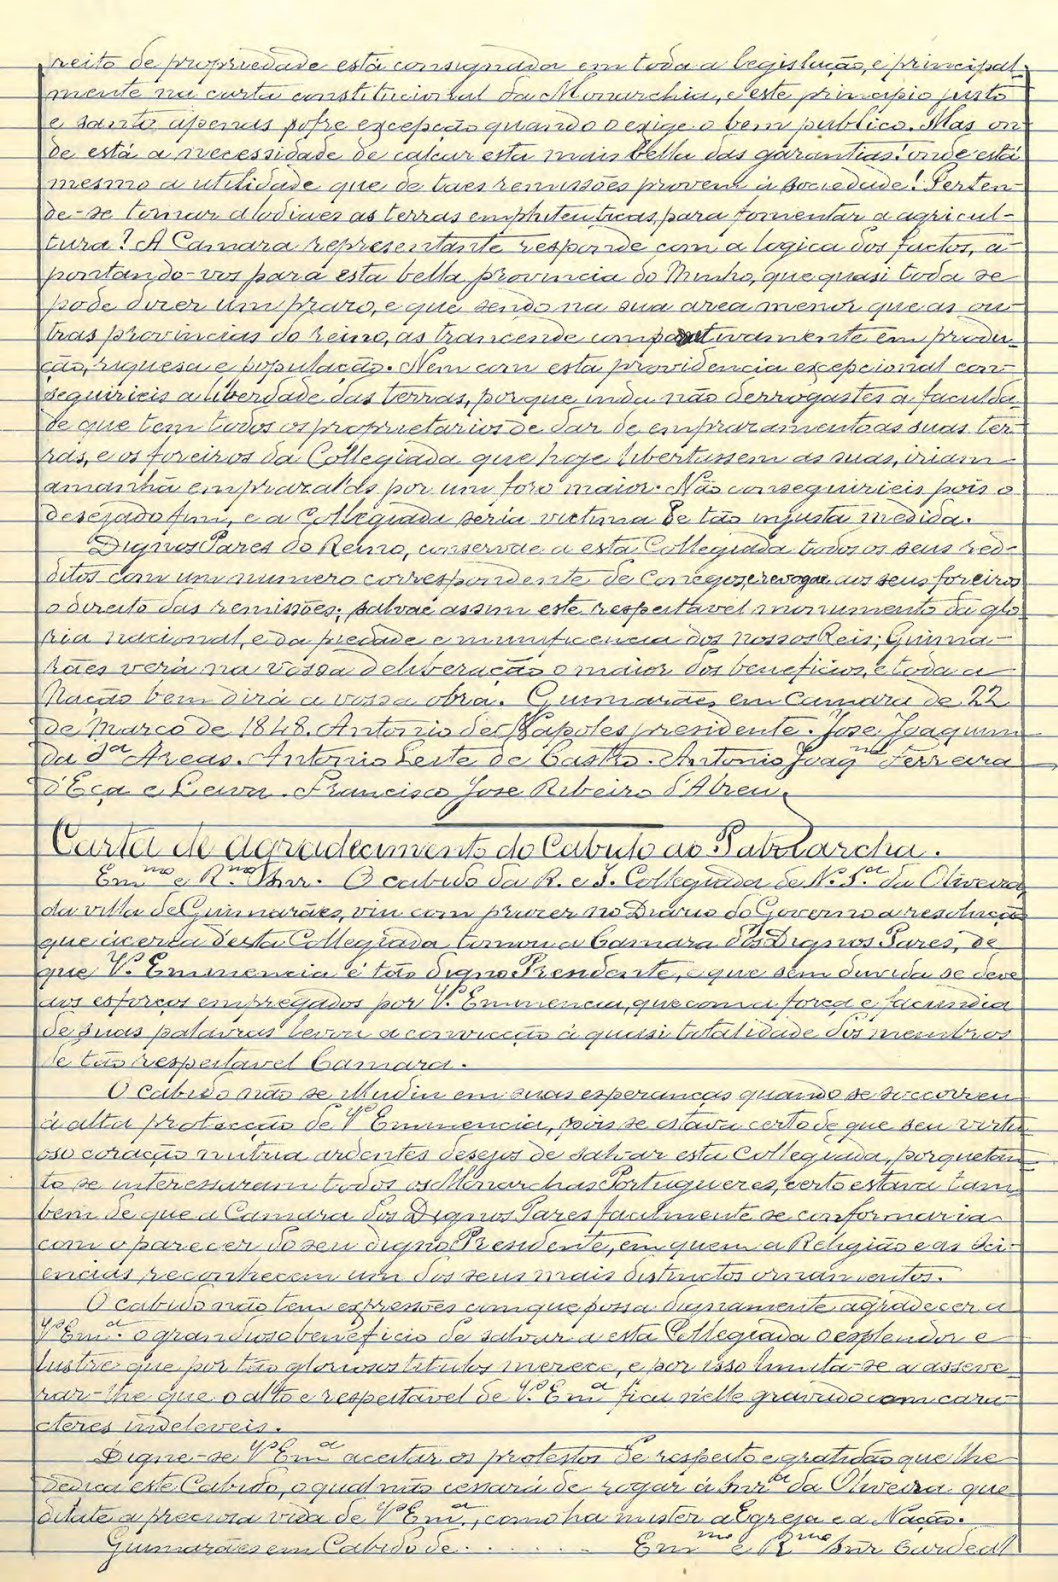 reito de propriedade está consignado em toda a legislação, e principal-
mente na carta constitucional da Monarchia, e este principio justo
e santo apenas sofre excepção quando o exige o bem publico. Mas on-
de está a necessidade de calcar esta mais bella das garantias! onde está
mesmo a utilidade que de taes remissões provem á sociedade! Perten-
de-se tornar alodiaes as terras emphiteuticas, para fomentar a agricul-
tura? A Camara representante responde com a logica dos factos, a-
pontando-vos para esta bella provincia do Minho, que quasi toda se
pode dizer um prazo, e que sendo na sua area menor que as ou-
tras provincias do reino, as trancende comparativamente em produ-
ção, riquesa e população. Nem com esta providencia excepcional con-
seguirieis a liberdade das terras, porque inda não derrogastes a faculda-
de que tem todos os proprietarios de dar de emprazamento as suas ter-
ras, e os foreiros da Collegiada que hoje libertassem as suas, iriam
amanhã emprazal-as por um foro maior. Não conseguirieis pois o
desejado fim, e a Collegiada seria victima de tão injusta medida.
Dignos Pares do Reino, conservae a esta Collegiada todos os seus red-
ditos com um numero correspondente de Conegos, e revogae aos seus foreiros
o direito das remissões; salvae assim este respeitavel monumento da glo-
ria nacional, e da piedade e munificencia dos nossos Reis; Guima-
rães verá na vossa deliberação o maior dos beneficios, e toda a
Nação bem dirá a vossa obra. Guimarães em Camara de 22
de Março de 1848. Antonio de Napoles presidente. José Joaquim
da Sª Areas. Antonio Leite de Castro. Antonio Joaqᵐ Ferreira
d'Eça e Leiva. Francisco José Ribeiro d'Abreu.
Carta de agradecimento do Cabido ao Patriarcha.
Emᵐᵒ e R.ᵐᵒ Snr. O cabido da R. e I. Collegiada de N. S.ª da Oliveira,
da villa de Guimarães, viu com prazer no Diario do Governo a resolução
que ácerca d'esta Collegiada tomou a Camara dos Dignos Pares, de
que V.ª Emminencia é tão digno Presidente, e que sem duvida se deve
aos esforços empregados por V.ª Emminencia, que com a força e facundia
de suas palavras levou a convicção á quasi totalidade dos membros
de tão respeitavel Camara.
O Cabido não se illudiu em suas esperanças quando se soccorreu
á alta protecção de Vª Emminencia, pois se estava certo de que seu virtu-
oso coração nutria ardentes desejos de salvar esta Collegiada, porque tan-
to se interessaram todos os Monarchas Portuguezes, certo estava tam-
bem de que a Camara dos Dignos Pares facilmente se conformaria
com o parecer do seu digno Presidente, em quem a Religião e as Sci-
encias reconhecem um dos seus mais distinctos ornamentos.
O cabido não tem expressões com que possa dignamente agradecer a
Vª Em.ª o grandioso beneficio de salvar a esta Collegiada o esplendor e
lustre que por tão gloriosos titulos merece, e por isso limita-se a asseve-
rar-lhe que o alto e respeitavel de V.ª Emª fica n'elle gravado com cara-
cteres indeleveis.
Digne-se Vª Emª aceitar os protestos de respeito e gratidão que lhe
dedica este Cabido, o qual não cessará de rogar á Snrª da Oliveira que
dilate a preciosa vida de Vª Emª, como ha mister a Egreja e a Nação.
Guimarães em Cabido de . . . . . . Emᵐᵒ e Rᵐᵒ Snr Cardeal